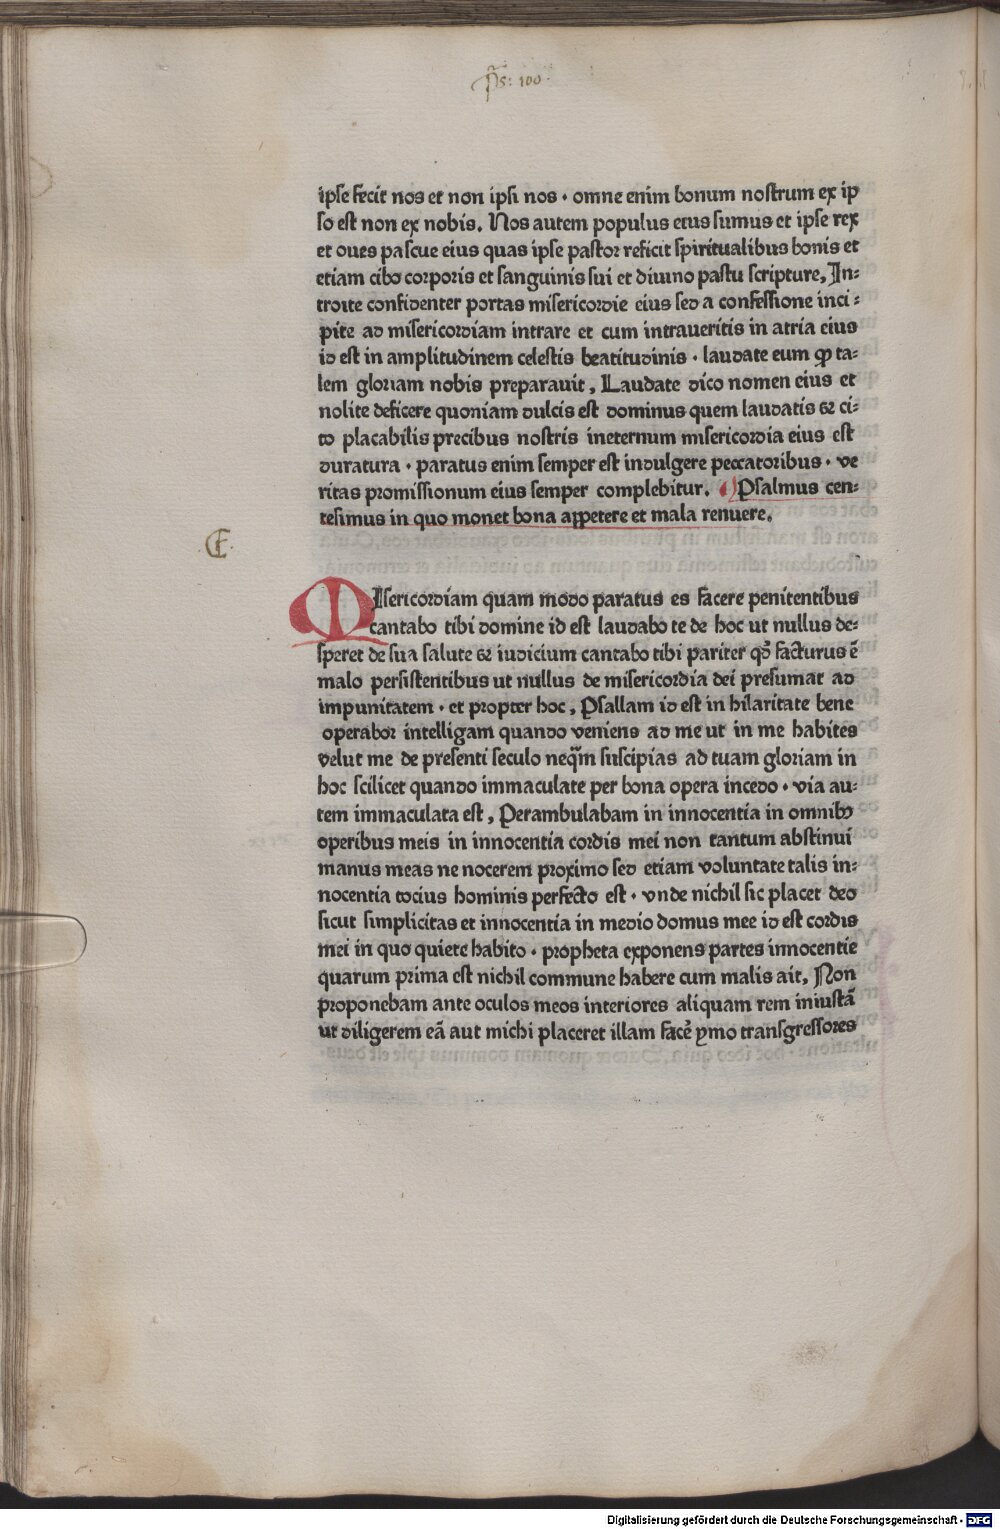 p̄s: 100.
ipse fecit nos et non ipsi nos · omne enim bonum nostrum ex ip
so est non ex nobis. Nos autem populus eius sumus et ipse rex
et oues pascue eius quas ipse pastor reficit spiritualibus bonis et
etiam cibo corporis et sanguinis sui et diuino pastu scripture, In:
troite confidenter portas misericordie eius sed a confessione inci:
pite ad misericordiam intrare et cum intraueritis in atria eius
id est in amplitudinem celestis beatitudinis · laudate eum ꝙ ta:
lem gloriam nobis preparauit, Laudate dico nomen eius et
nolite deficere quoniam dulcis est dominus quem laudatis & ci:
to placabilis precibus nostris ineternum misericordia eius est
duratura · paratus enim semper est indulgere peccatoribus · ve
ritas promissionum eius semper complebitur. Psalmus cen:
tesimus in quo monet bona appetere et mala renuere.
MIsericordiam quam modo paratus es facere penitentibus
cantabo tibi domine id est laudabo te de hoc ut nullus de:
speret de sua salute & iudicium cantabo tibi pariter qd̄ facturus ē
malo persistentibus ut nullus de misericordia dei presumat ad
impunitatem · et propter hoc, Psallam id est in hilaritate bene
operabor intelligam quando veniens ad me ut in me habites
velut me de presenti seculo neq̄m suscipias ad tuam gloriam in
hoc scilicet quando immaculate per bona opera incedo · via au:
tem immaculata est, Perambulabam in innocentia in omnibꝰ
operibus meis in innocentia cordis mei non tantum abstinui
manus meas ne nocerem proximo sed etiam voluntate talis in:
nocentia tocius hominis perfecto est · vnde nichil sic placet deo
sicut simplicitas et innocentia in medio domus mee id est cordis
mei in quo quiete habito · propheta exponens partes innocentie
quarum prima est nichil commune habere cum malis ait, Non
proponebam ante oculos meos interiores aliquam rem iniustā
ut diligerem eā aut michi placeret illam facē ymo transgressores
Digitalisierung gefördert durch die Deutsche Forschungsgemeinschaft - DFG